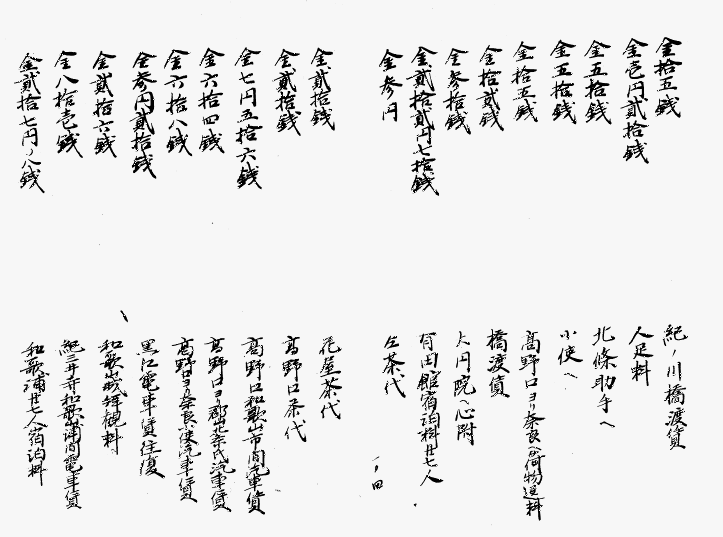 金拾五銭 紀ノ川橋渡賃
金壱円貳拾銭 人足料
金五拾銭 北條助手へ
金五拾銭 小使へ
金拾五銭 高野口ヨリ奈良へ荷物運料
金拾貳銭 橋渡賃
金参拾銭 大円院へ心附
金貳拾貳円七拾銭 有田館宿泊料廿七人
金参円 仝茶代
一ノ四
金貳拾銭 花屋茶代
金貳拾銭 高野口茶代
金七円五拾六銭 高野口和歌山市間汽車賃
金六拾四銭 高野口ヨリ郡山迄 汽車賃
金六拾八銭 高野口ヨリ奈良 汽車賃
金参円貳拾銭 黒江電車賃往復
金貳拾六銭 和歌山城拝観料
金八拾壱銭 紀三井寺和歌浦間電車賃
金貳拾七円〇八銭 和歌浦廿七人宿泊料